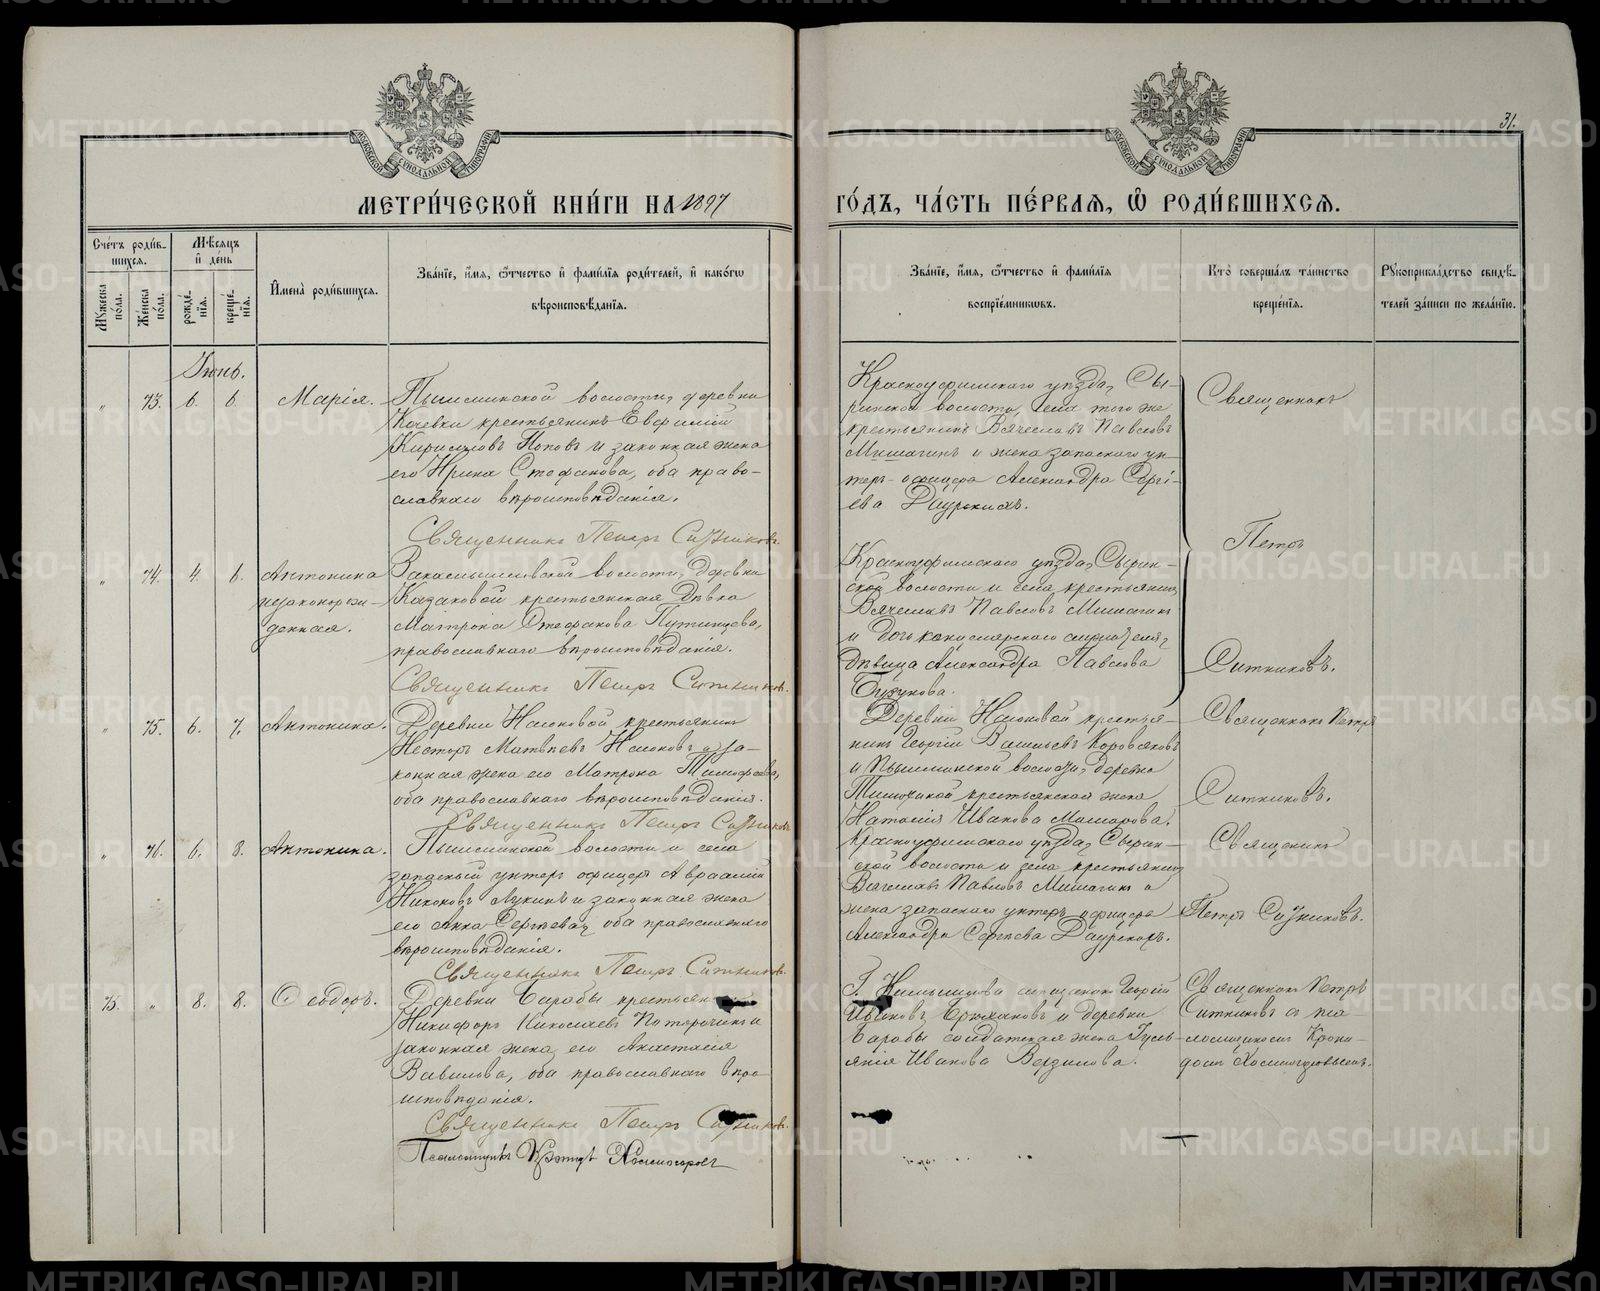 31.
МЕТРИ́ЧЕСКОЙ КНИ́ГИ НА 1897
ГО́ДЪ, ЧА́СТЬ ПЕ́РВАЯ, Ѽ РОДИ́ВШИХСЯ.
Сче́тъ роди́в-
шихся.
Му́жеска по́ла.
Же́нска по́ла.
Мѣ́сяцъ и де́нь
рожде́-
нїя.
креще́-
нїя.
И҆мена̀ роди́вшихся.
Зва́нїе, и҆́мя, ѻ҆́тчество и҆ фами́лїя роди́телей, и҆ како́гѡ
вѣроисповѣ́данїя.
Зва́нїе, и҆́мя, ѻ҆́тчество и҆ фами́лїя
воспрїе́мникѡвъ.
Кто̀ соверша́лъ та́инство
креще́нїя.
Рꙋкоприкла́дство свидѣ́-
телей за́писи по жела́нїю.
Іюнь.
„ 73. 6. 6. Марія.
Пышминской волости, деревни
Кочевки крестьянинъ Евфимій
Кириловъ Поповъ и законная жена
его Ирина Стефанова, оба право-
славнаго вѣроисповѣданія.
Священникъ Петръ Ситниковъ.
Красноуфимскаго уѣзда, Сы-
ринской волости, села того же
крестьянинъ Вячеславъ Павловъ
Мишагинъ и жена запаснаго ун-
теръ-офицера Александра Сергі-
ева Даурскихъ.
Священникъ
Петръ
Ситниковъ.
„ 74. 4. 6. Антонина
незаконорож-
денная.
волости, деревни
Казаковой крестьянская дѣвка
Матрона Стефанова Путинцева,
православнаго вѣроисповѣданія.
Священникъ Петръ Ситниковъ.
Красноуфимскаго уѣзда, Сырин-
ской волости и села крестьянинъ
Вячеславъ Павловъ Мишагинъ
и
дѣвица Александра Павлова
„ 75. 6. 7. Антонина.
Деревни Насоновой крестьянинъ
Несторъ Матвѣевъ Насоновъ и за-
конная жена его Матрона Тимофеева,
оба православнаго вѣроисповѣданія.
Священникъ Петръ Ситниковъ
Деревни Насоновой крестья-
нинъ Георгій Васильевъ Коровяковъ
и Пышминской волости, деревни
крестьянская жена
Наталія Иванова
Священникъ Петръ
Ситниковъ.
„ 76. 6. 8. Антонина.
Пышминской волости и села
запасный унтеръ офицеръ Авраамій
Никоновъ Лукинъ и законная жена
его Анна Сергѣева, оба православнаго
вѣроисповѣданія.
Священникъ Петръ Ситниковъ.
Красноуфимскаго уѣзда, Сырин-
ской волости и села крестьянинъ
Вячеславъ Павловъ Мишагинъ и
жена запаснаго унтеръ офицера
Александра Сергѣева Даурскихъ.
Священникъ
Петръ Ситниковъ.
75. „ 8. 8. Ѳеодоръ.
Деревни Барабы крестьянинъ
Никифоръ Николаевъ и
законная жена его Анастасія
Вавилова, оба православнаго вѣро-
исповѣданія.
Священникъ Петръ Ситниковъ.
Псаломщикъ
Георгій
Ивановъ и деревни
Барабы солдатская жена
Иванова
Священникъ Петръ
Ситниковъ съ пса-
ломщикомъ